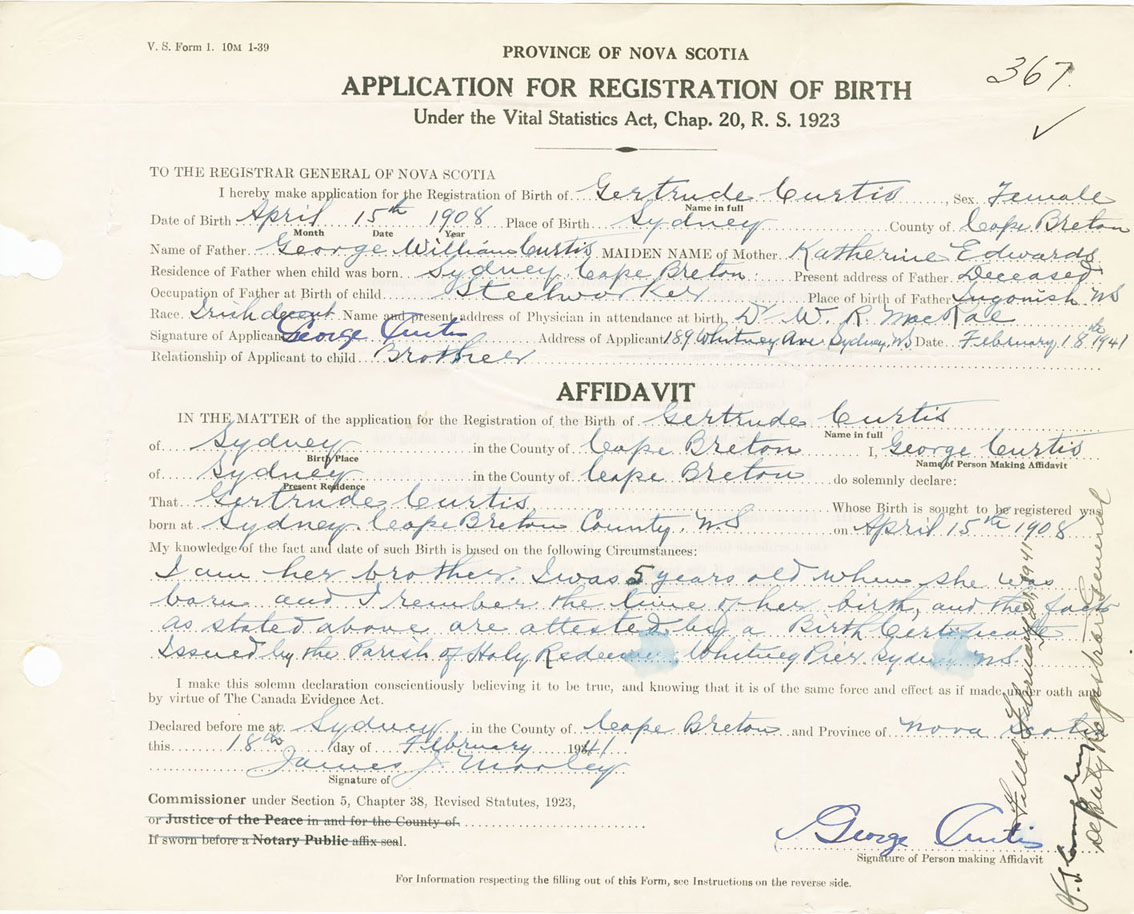 V. S. Form 1. 10M 1-39
PROVINCE OF NOVA SCOTIA
367.
APPLICATION FOR REGISTRATION OF BIRTH
Under the Vital Statistics Act, Chap. 20, R. S. 1923
TO THE REGISTRAR GENERAL OF NOVA SCOTIA
I hereby make application for the Registration of Birth of Gertrude Curtis, Sex Female
Name in full
Date of Birth April 15th 1908 Place of Birth Sydney County of Cape Breton
Month Date Year
Name of Father George William Curtis MAIDEN NAME of Mother Katherine Edwards
Residence of Father when child was born Sydney Cape Breton Present address of Father Deceased
Occupation of Father at Birth of child Steelworker Place of birth of Father Ingonish NS
Race Irish decent Name and present address of Physician in attendance at birth Dr W. R. MacRae
Signature of Applicant George Curtis Address of Applicant 189 Whitney Ave Sydney, NS Date February 18th 1941
Relationship of Applicant to child Brother
AFFIDAVIT
IN THE MATTER of the application for the Registration of the Birth of Gertrude Curtis
Name in full
of Sydney in the County of Cape Breton I, George Curtis
Birth Place Name of Person Making Affidavit
of Sydney in the County of Cape Breton do solemnly declare:
Present Residence
That Gertrude Curtis Whose Birth is sought to be registered was
born at Sydney Cape Breton County. N.S on April 15th 1908
My knowledge of the fact and date of such Birth is based on the following Circumstances:
I am her brother. I was 5 years old when she was
born and I rember the time of her birth, and the facts
as stated above are attested by a Birth Certificate
Issued by the Parish of Holy Redeemer Whitney Pier Sydney NS.
I make this solemn declaration conscientiously believing it to be true, and knowing that it is of the same force and effect as if made under oath and
by virtue of The Canada Evidence Act.
Declared before me at Sydney in the County of Cape Breton and Province of Nova Scotia
this 18th day of February 1941
James J.
Signature of
Commissioner under Section 5, Chapter 38, Revised Statutes, 1923,
or Justice of the Peace in and for the County of
If sworn before a Notary Public affix seal.
George Curtis
Signature of Person making Affidavit
For Information respecting the filling out of this Form, see Instructions on the reverse side.
Filed February 1941
Deputy Registrar General